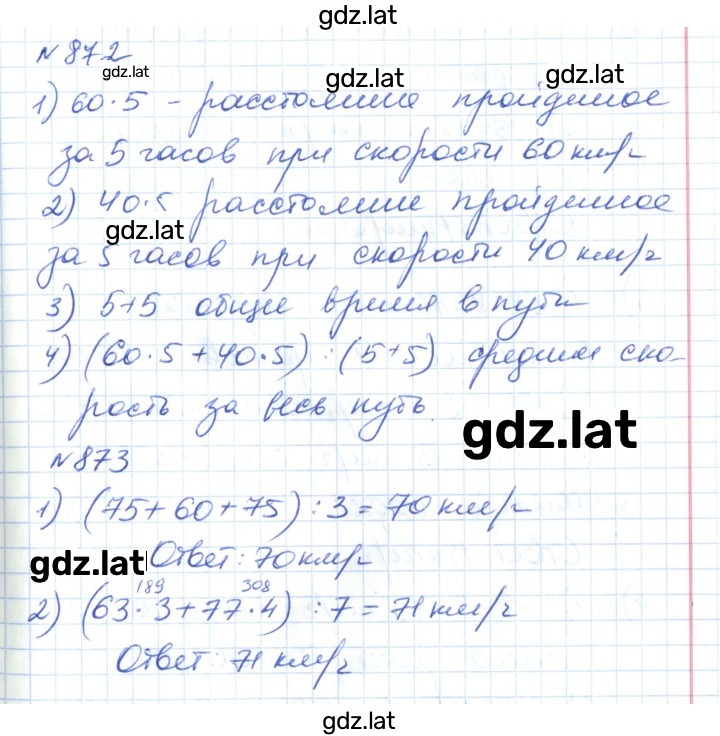 gdz.lat
№ 872
gdz.lat
gdz.lat
gdz.lat
1) 60·5 - расстояние пройденное
за 5 часов при скорости 60 км/ч
2) 40·5 расстояние пройденное
gdz.lat
за 5 часов при скорости 40 км/ч
3) 5+5 общее время в пути
4) (60·5+40·5):(5+5) средняя ско-
рость за весь путь.
gdz.lat
№ 873
1) (75+60+75):3=70 км/ч
gdz.lat
Ответ: 70 км/ч
189 308
2) (63·3+77·4):7=71 км/ч
Ответ: 71 км/ч
gdz.lat